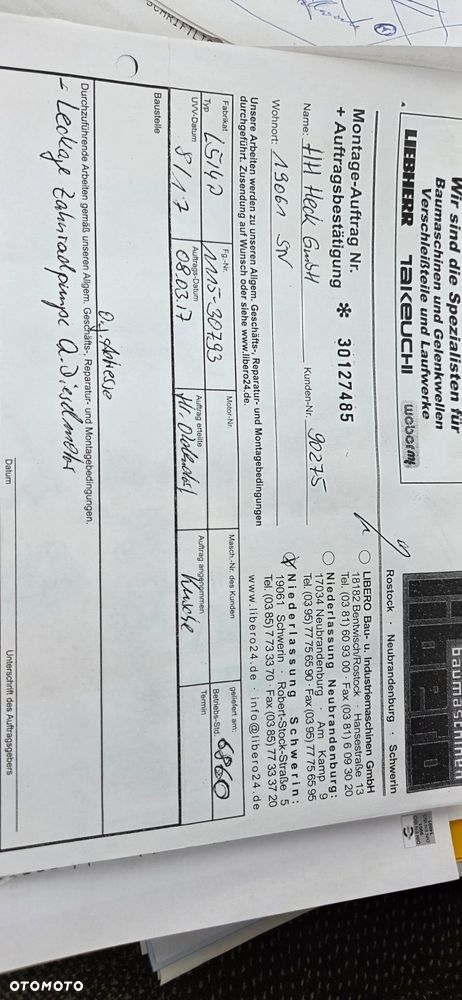 Wir sind die Spezialisten für
Baumaschinen und Gelenkwellen
Verschleißteile und Laufwerke
LIEBHERR TAKEUCHI weber mt
baumaschinen
Rostock · Neubrandenburg · Schwerin
Montage-Auftrag Nr.
+ Auftragsbestätigung * 30127485
LIBERO Bau- u. Industriemaschinen GmbH
18182 Bentwisch/Rostock · Hansestraße 13
Tel. (03 81) 60 93 00 · Fax (03 81) 6 09 30 20
Niederlassung Neubrandenburg:
17034 Neubrandenburg · Am Kamp 9
Tel. (03 95) 77 75 65 90 · Fax (03 95) 77 75 65 95
Niederlassung Schwerin:
19061 Schwerin · Robert-Stock-Straße 5
Tel. (03 85) 7 73 33 70 · Fax (03 85) 77 33 37 20
www.libero24.de · info@libero24.de
Name: HH Heck GmbH Kunden-Nr. 90275
Wohnort: 19061 SN
Unsere Arbeiten werden zu unseren Allgem. Geschäfts-, Reparatur- und Montagebedingungen
durchgeführt. Zusendung auf Wunsch oder siehe www.libero24.de.
Fabrikat Fg.-Nr. Motor-Nr. Masch.-Nr. des Kunden geliefert am:
Typ L574D 1115-30793 Betriebs-Std. 6860
UVV-Datum Auftrags-Datum Auftrag erteilte Auftrag angenommen Termin
8/17 08.03.17
Baustelle
Durchzuführende Arbeiten gemäß unseren Allgem. Geschäfts-, Reparatur- und Montagebedingungen.
- Leckage Zahnradpumpe a. Dieselmotor
Datum Unterschrift des Auftragsgebers
OTOMOTO
OTOMOTO